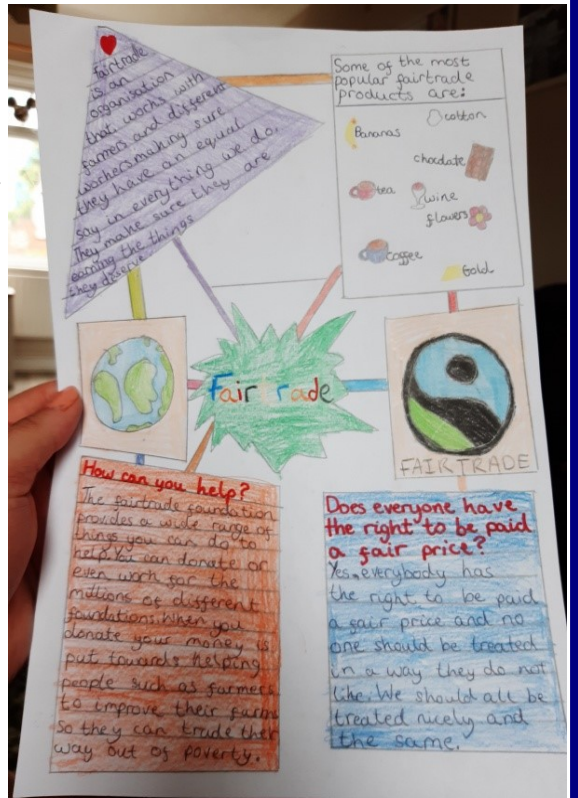 fairtrade
is an
organisation
that works with
farmers and different
workers making sure
they have an equal
say in everything we do.
They make sure they are
earning the things
they deserve
Some of the most
popular fairtrade
products are:
Bananas
cotton
chocolate
tea
wine
flowers
coffee
Gold
Fairtrade
FAIRTRADE
How can you help?
The fairtrade foundation
provides a wide range of
things you can do to
help. You can donate or
even work for the
millions of different
foundations. When you
donate your money is
put towards helping
people such as farmers
to improve their farms
so they can trade their
way out of poverty.
Does everyone have
the right to be paid
a fair price?
Yes, everybody has
the right to be paid
a fair price and no
one should be treated
in a way they do not
like. We should all be
treated nicely and
the same.